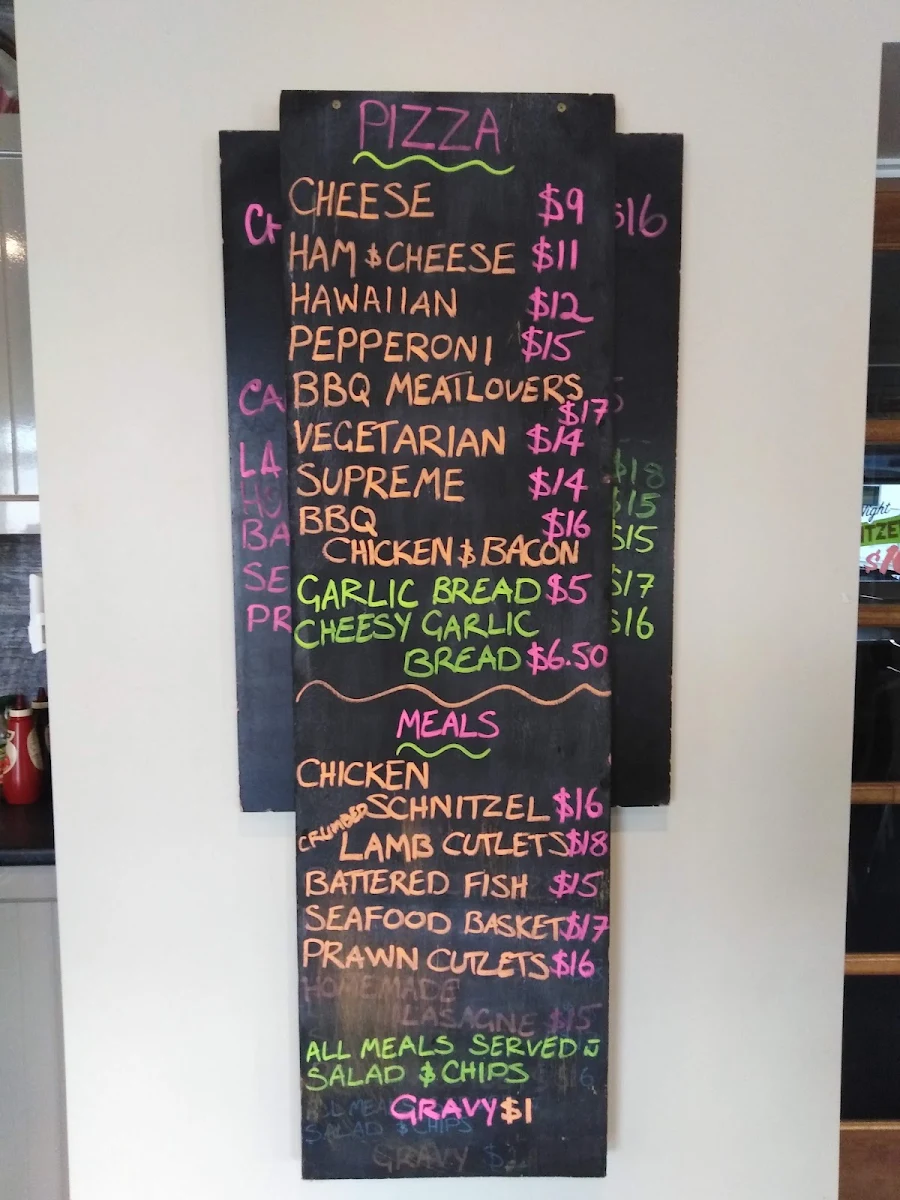 PIZZA
CHEESE $9
HAM & CHEESE $11
HAWAIIAN $12
PEPPERONI $15
BBQ MEATLOVERS
$17
VEGETARIAN $14
SUPREME $14
BBQ $16
CHICKEN & BACON
GARLIC BREAD $5
CHEESY GARLIC
BREAD $6.50
MEALS
CHICKEN
SCHNITZEL $16
CRUMBED
LAMB CUTLETS $18
BATTERED FISH $15
SEAFOOD BASKET $17
PRAWN CUTLETS $16
HOMEMADE
LASAGNE $15
ALL MEALS SERVED
SALAD & CHIPS
GRAVY $1
SALAD & CHIPS
GRAVY
CA
LA
HO
BA
SE
PR
$16
$18
$15
$15
$17
$16